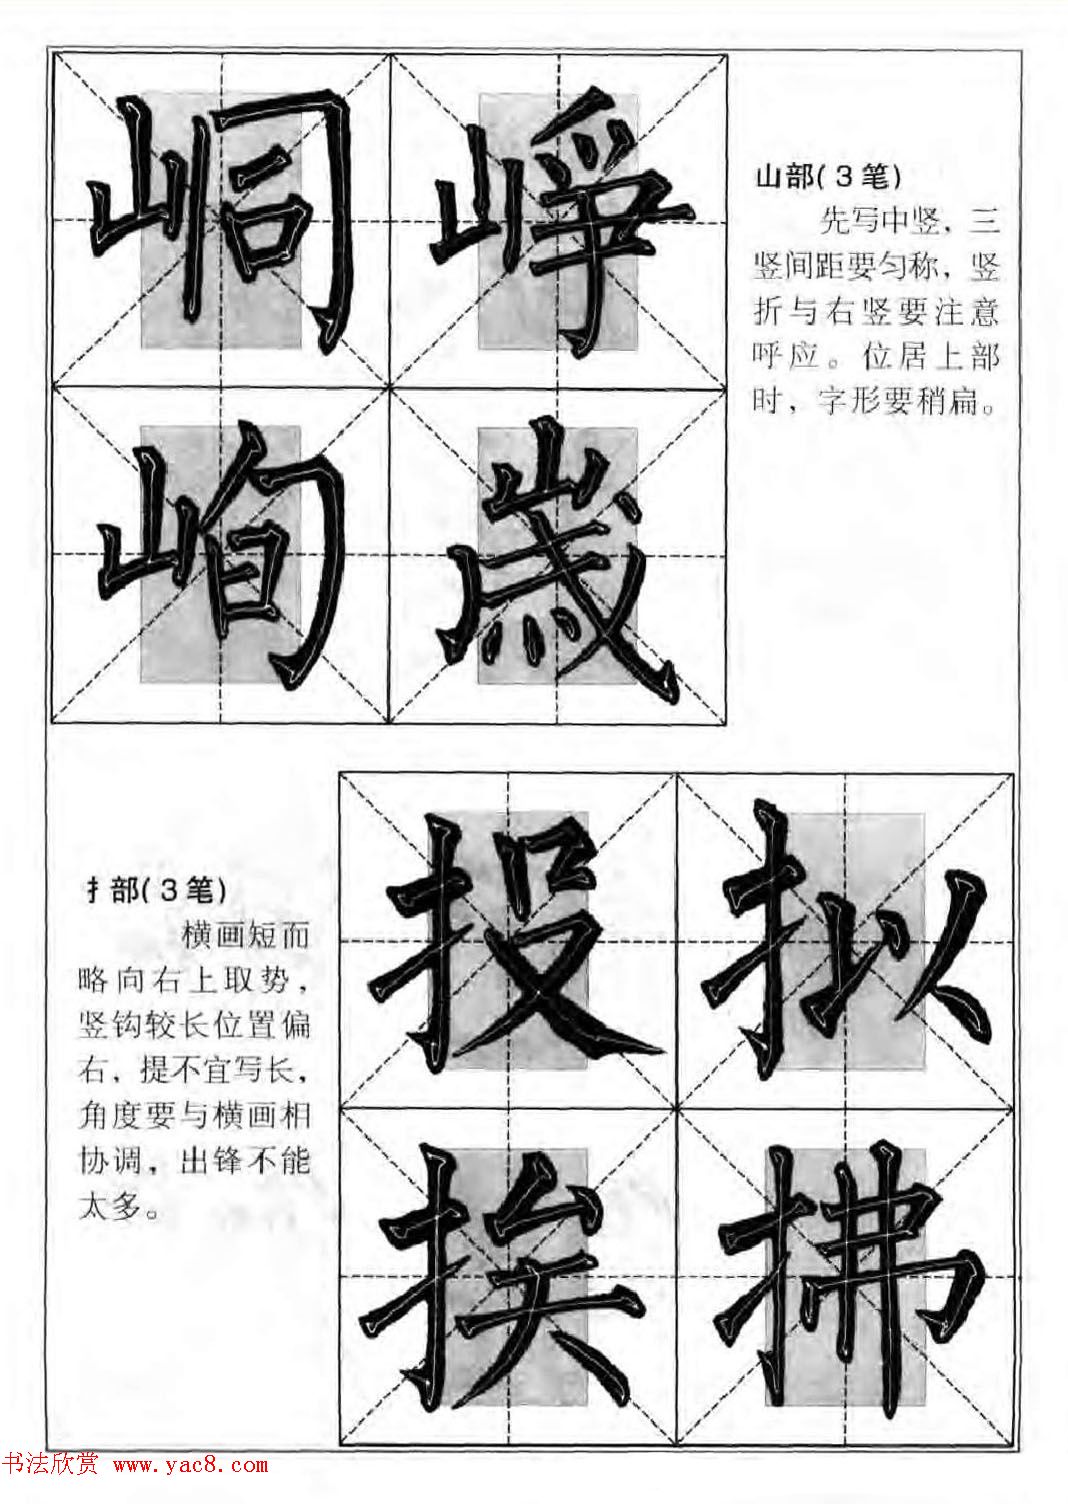 峒 峥
山部(3笔)
先写中竖，三
竖间距要匀称，竖
折与右竖要注意
呼应。位居上部
时，字形要稍扁。
峋 嵗
投 拟
扌部(3笔)
横画短而
略向右上取势，
竖钩较长位置偏
右，提不宜写长，
角度要与横画相
协调，出锋不能
太多。
挨 拂
书法欣赏 www.yac8.com